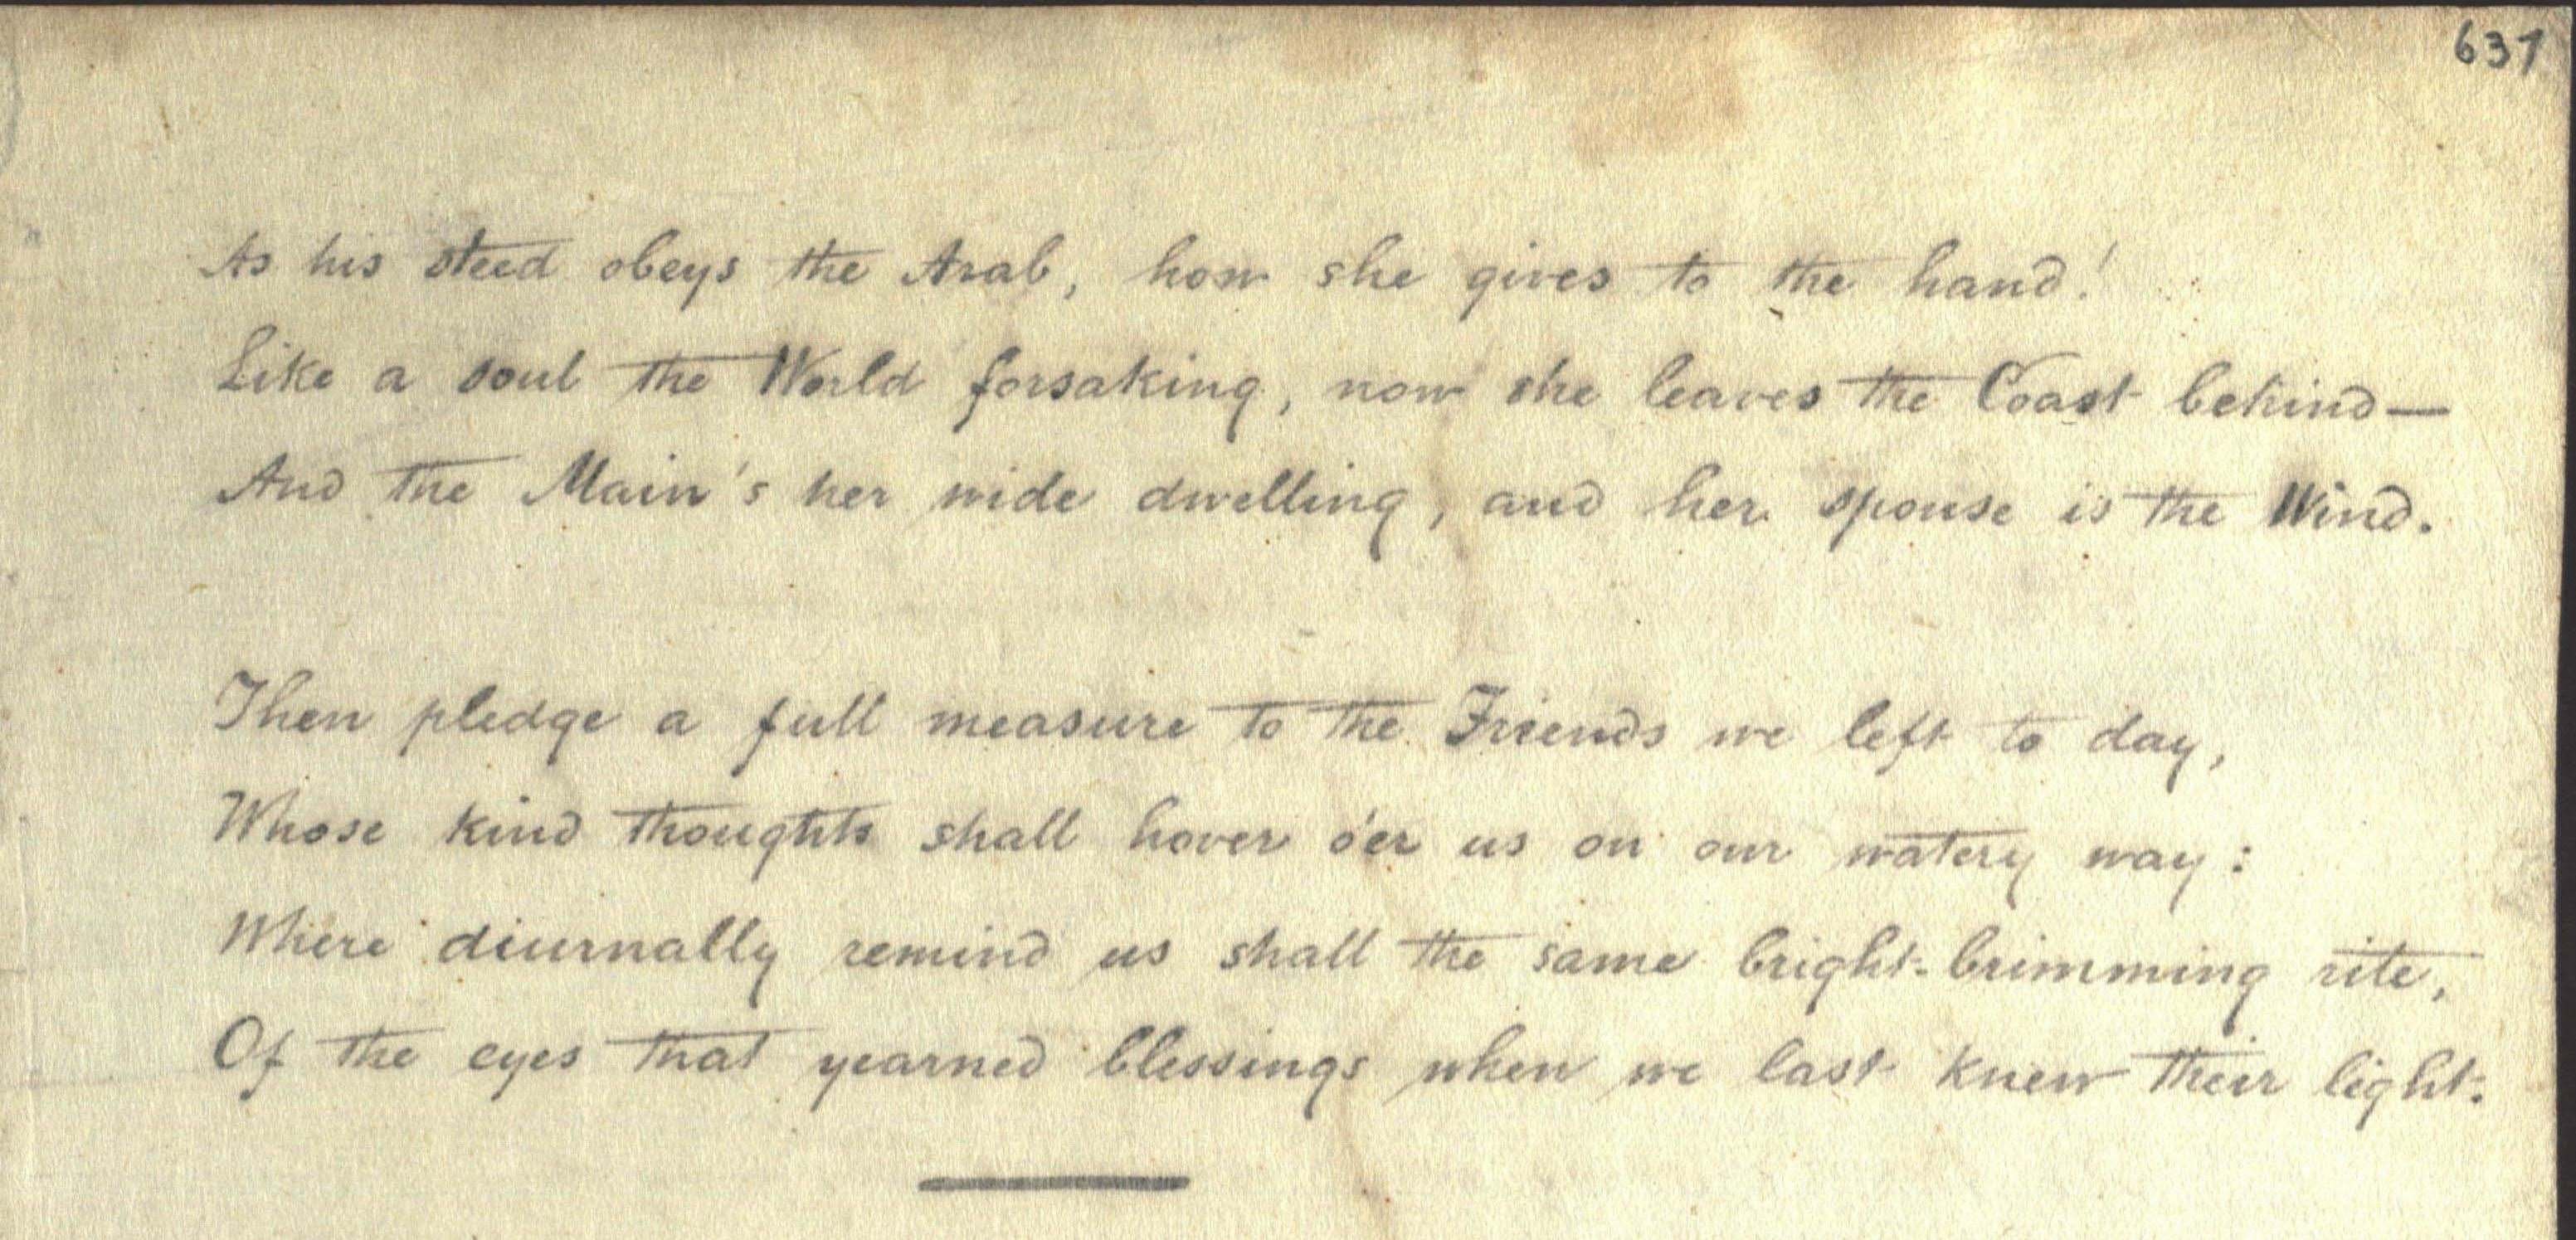 637
As his steed obeys the Arab, how she gives to the hand!
Like a soul the World forsaking, now she leaves the Coast behind—
And the Main's her wide dwelling, and her spouse is the Wind.
Then pledge a full measure to the Friends we left to day,
Whose kind thoughts shall hover o'er us on our watery way:
Where diurnally remind us shall the same bright-brimming rite,
Of the eyes that yearned blessings when we last knew their light.